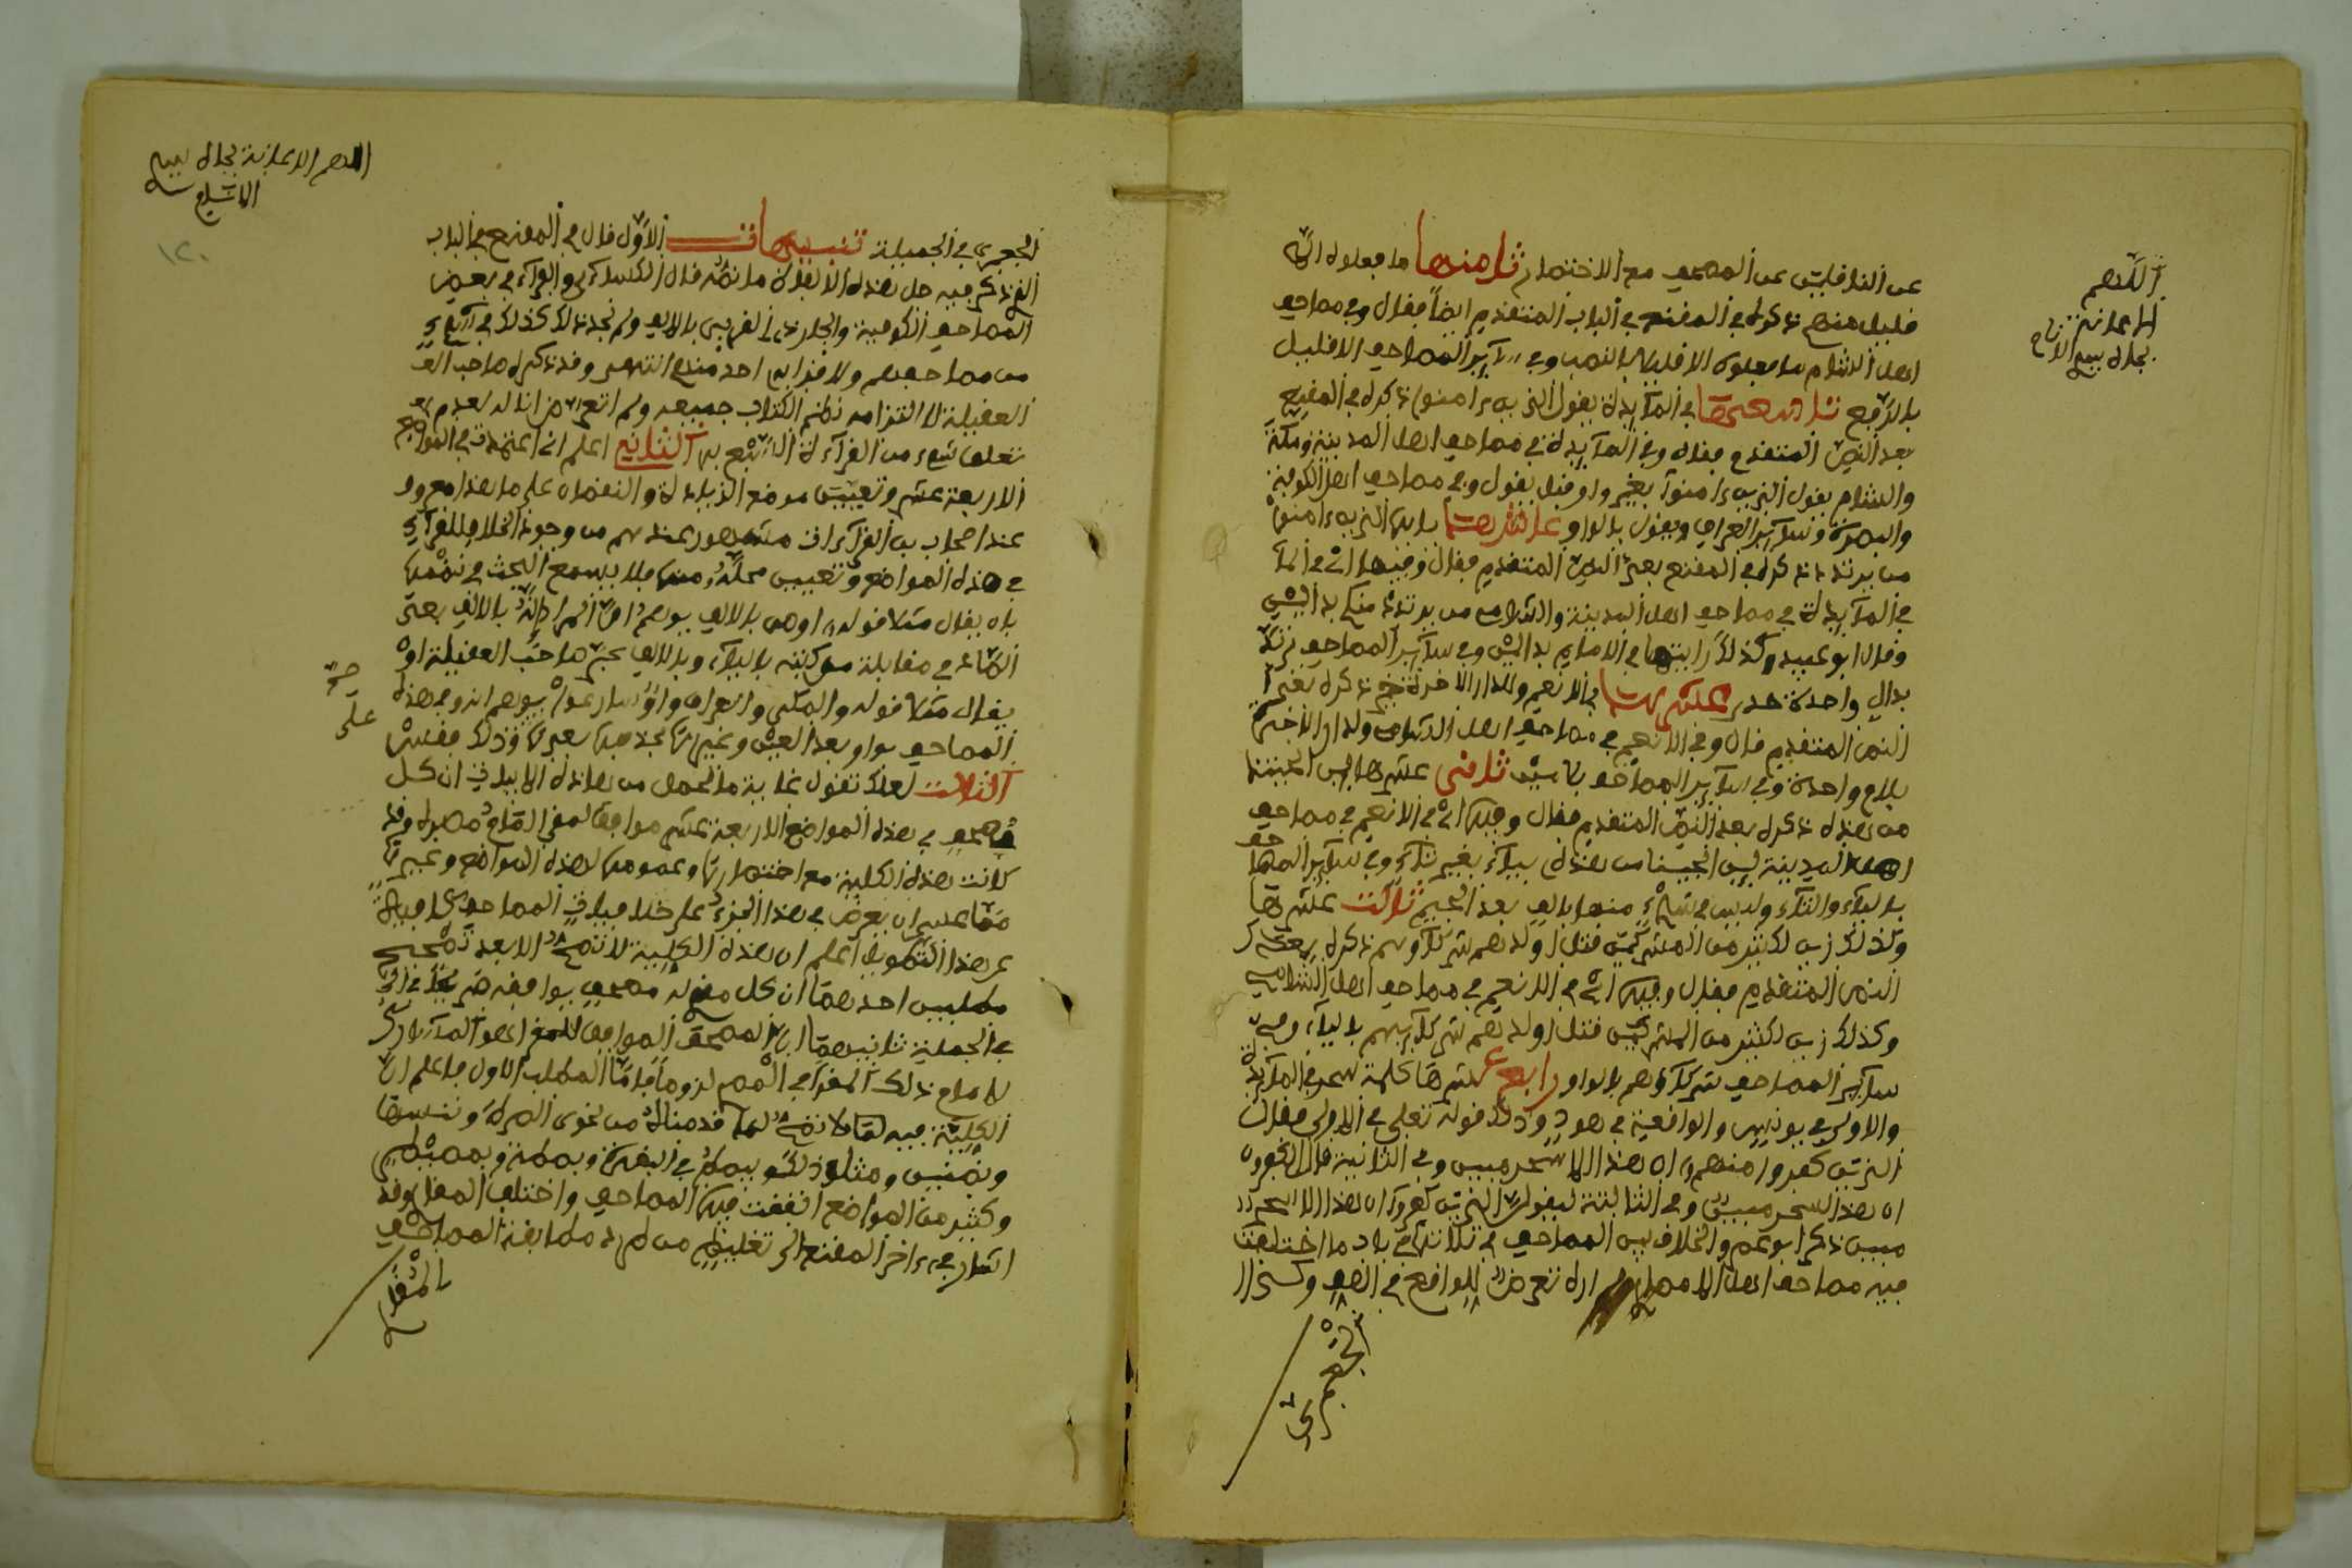 عن الناقلين عن المصحف مع الاختصار ثامنها ما فعلوه الا
قليل منهم ذكره في المقنع في الباب المتقدم ايضا فقال وفي مصاحف
اهل الشام ما فعلوه الا قليلا بالنصب وفي سآئر المصاحف الا قليل
بالرفع تاسعها في المآئدة يقول الذين ءامنوا ذكره في المقنع
بعد النص المتقدم فقال وفي المآئدة في مصاحف اهل المدينة ومكة
والشام يقول الذين ءامنوا بغير واو قبل يقول وفي مصاحف اهل الكوفة
والبصرة وسآئر العراق ويقول بالواو عاشرها يا ايها الذين ءامنوا
من يرتدد ذكره في المقنع بعد النص المتقدم فقال وفيها اي في الما
في المآئدة في مصاحف اهل المدينة والشام من يرتدد منكم بدالين
وقال ابو عبيد وكذلك رايتها في الامام بدالين وفي سآئر المصاحف يرتد
بدال واحدة حادي عشرها في الانعم وللدار الاخرة خير ذكره بعد
النص المتقدم فقال وفي الانعم في مصاحف اهل الشام ولدار الاخرة
بلام واحدة وفي سآئر المصاحف بلامين ثاني عشرها لين انجيتنا
من هذه ذكره بعد النص المتقدم فقال وفيها اي في الانعم في مصاحف
اهل المدينة لين انجيتنا من هذه بيآء بغير تآء وفي سآئر المصاحف
باليآء والتآء وليس في شيء منها بالف بعد الجيم ثالث عشرها
وكذلك زين لكثير من المشركين قتل اولدهم شركآؤهم ذكره بعد
النص المتقدم فقال وفيها اي في الانعم في مصاحف اهل الشام
وكذلك زين لكثير من المشركين قتل اولدهم شركآئهم باليآء وفي
سآئر المصاحف شركآؤهم بالواو رابع عشرها كلمة سحر في المآئدة
والاولى في يونس والواقعة في هود وذلك قوله تعلى في الاولى فقال
الذين كفروا منهم ان هذا الا سحر مبين وفي الثانية قال الكفرون
ان هذا لسحر مبين وفي الثالثة ليقولن الذين كفروا ان هذا الا سحر
مبين ذكر ابو عمرو الخلاف بين المصاحف في ثلاثتها في باب ما اختلفت
فيه مصاحف اهل الامصار ولم اره تعرض للواقع في الصف وكذا
الجعبري
اللهم
الاعانة
بجاه نبيه الا
الجعبري في الجميلة تنبيهات الاول قال في المقنع في الباب
الذي ذكر فيه جل هذه الالفاظ ما نصه قال الكسآئي والفرآء في بعض
المصاحف الكوفية والجار ذا القربى بالالف ولم نجد ذلك كذلك في شيء
من مصاحفهم ولا قرا به احد منهم انتهى وقد ذكره صاحب
العقيلة لالتزامه نظم الكتاب جميعه ولم اتعرض انا له لعدم
تعلق شيء من القرآءة السبع به الثاني اعلم اني اعتمدت في المواضع
الاربعة عشر وتعيين موضع الزيادة والنقصان على ما هو معروف
عند اصحاب القرآءات مشهور عندهم من وجود الخلاف للقرآء
في هذه المواضع وتعيين محله منها فلا يسمع البحث في نظمها
بان يقال مثلا قوله اوصى بالالف يوهم ان المراد انه بالالف بعد
الصاد في مقابلة من كتبه باليآء وبالالف عبر صاحب العقيلة او
يقال مثلا قوله والمكي والعراق واوا سارعوا يوهم انه في هذه
المصاحف بواو بعد العين وغيرها بحذفها بعدها وذلك مفسد
الثالث لعلك تقول غاية ما تحصل من هذه الابيات ان كل
مصحف في هذه المواضع الاربعة عشر موافق لمقرإ القارئ بمصره وقد
كانت هذه الكلية مع اختصارها وعمومها لهذه المواضع وغيرها
مما عسى ان يعرض في هذا الجزء على خلافيات المصاحف كافية
عن هذا التطويل اعلم ان هذه الكلية لا تصح الا بعد تصحيح
مطلبين احدهما ان كل مقرإ مصحف يوافقه
في الجملة ثانيهما ان المصحف الموافق للمقرإ هو المآثور
لامام ذلك المقرإ في المصر لزوما فاما المطلب الاول فاعلم ان
الكلية فيه لا تصح لما قدمناه من نحو الصراط وننسها
وبضنين ومثل ذلك ويبصط في البقرة وبصطة وبمصيطر
وكثير من المواضع اتفقت فيها المصاحف واختلف المقرا وقد
اشار في ءاخر المقنع الى تغليط من طرد مطابقة المصاحف
صح
على
اللهم الاعانة بجاه نبيه
١٢٠